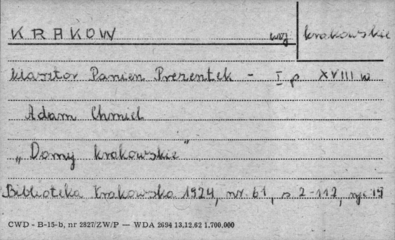 KRAKOW woj krakowskie
klasztor Panien Prezentek - I p XVIII w
Adam Chmiel
„Domy krakowskie"
Biblioteka Krakowska 1924, nr 61, s 2-112, ryc 19
CWD - B-15-b, nr 2827/ZW/P — WDA 2694 13.12.62 1.700.000